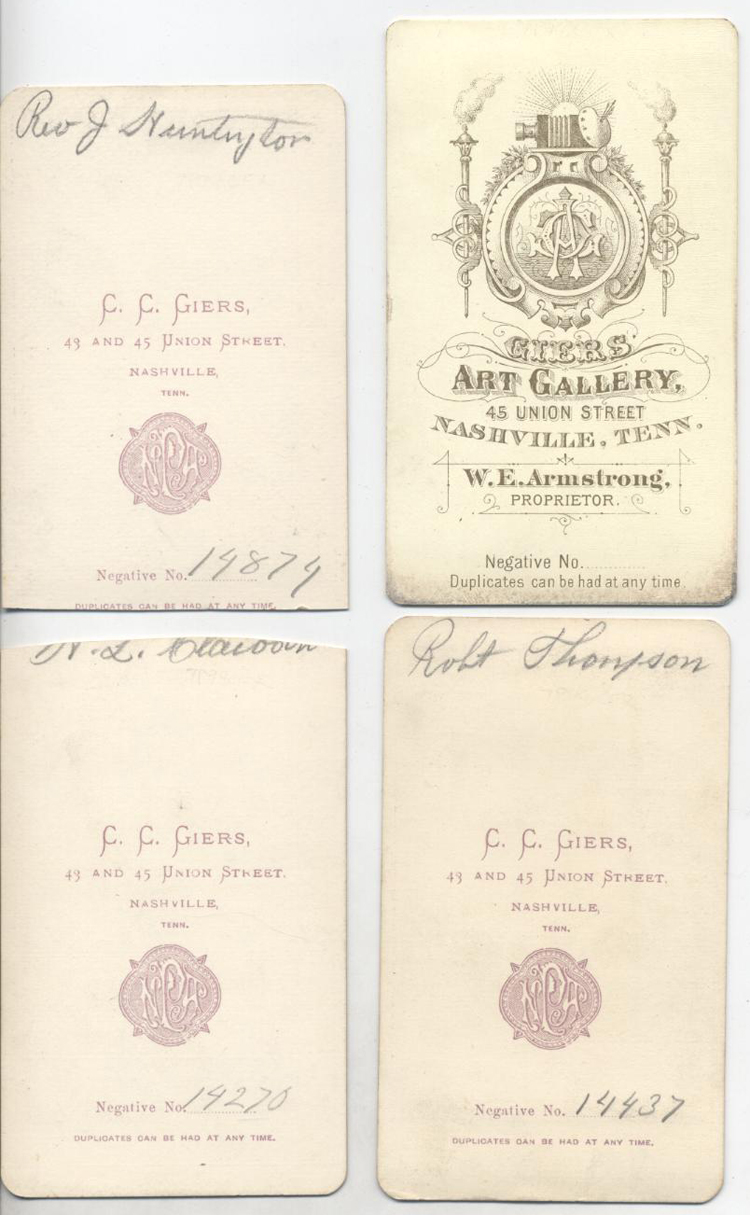 Rev J Huntington
C. C. GIERS,
43 AND 45 UNION STREET,
NASHVILLE,
TENN.
NPA
Negative No. 14874
DUPLICATES CAN BE HAD AT ANY TIME.
GIERS
ART GALLERY,
45 UNION STREET
NASHVILLE, TENN.
W.E. Armstrong,
PROPRIETOR.
Negative No.
Duplicates can be had at any time.
N. L.
C. C. GIERS,
43 AND 45 UNION STREET,
NASHVILLE,
TENN.
NPA
Negative No. 14270
DUPLICATES CAN BE HAD AT ANY TIME.
Robt Thompson
C. C. GIERS,
43 AND 45 UNION STREET,
NASHVILLE,
TENN.
NPA
Negative No. 14437
DUPLICATES CAN BE HAD AT ANY TIME.